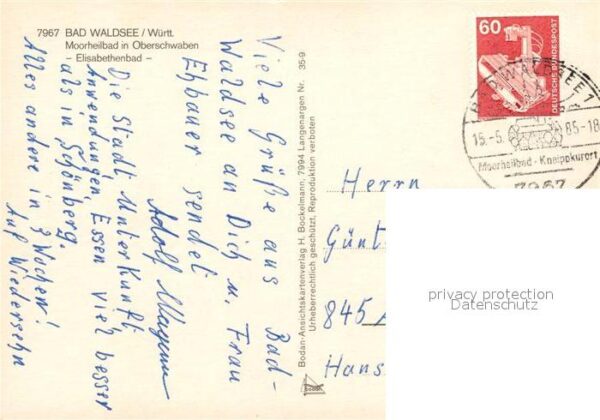 7967 BAD WALDSEE / Württ.
Moorheilbad in Oberschwaben
- Elisabethenbad -
Viele Grüße aus Bad-
Waldsee an Dich u. Frau
Ehbauer sendet
Adolf Wagner
Die Stadt, Unterkunft,
Anwendungen, Essen viel besser
als in Schönberg.
Alles andere in 3 Wochen!
Auf Wiedersehn
Bodan-Ansichtskartenverlag H. Bockelmann, 7994 Langenargen Nr. 359
Urheberrechtlich geschützt, Reproduktion verboten
BODAN
60
DEUTSCHE BUNDESPOST
BAD WALDSEE 1
15.-5. 85-18
Moorheilbad - Kneippkurort
7967
Herrn
Günt
845
Hans
privacy protection
Datenschutz